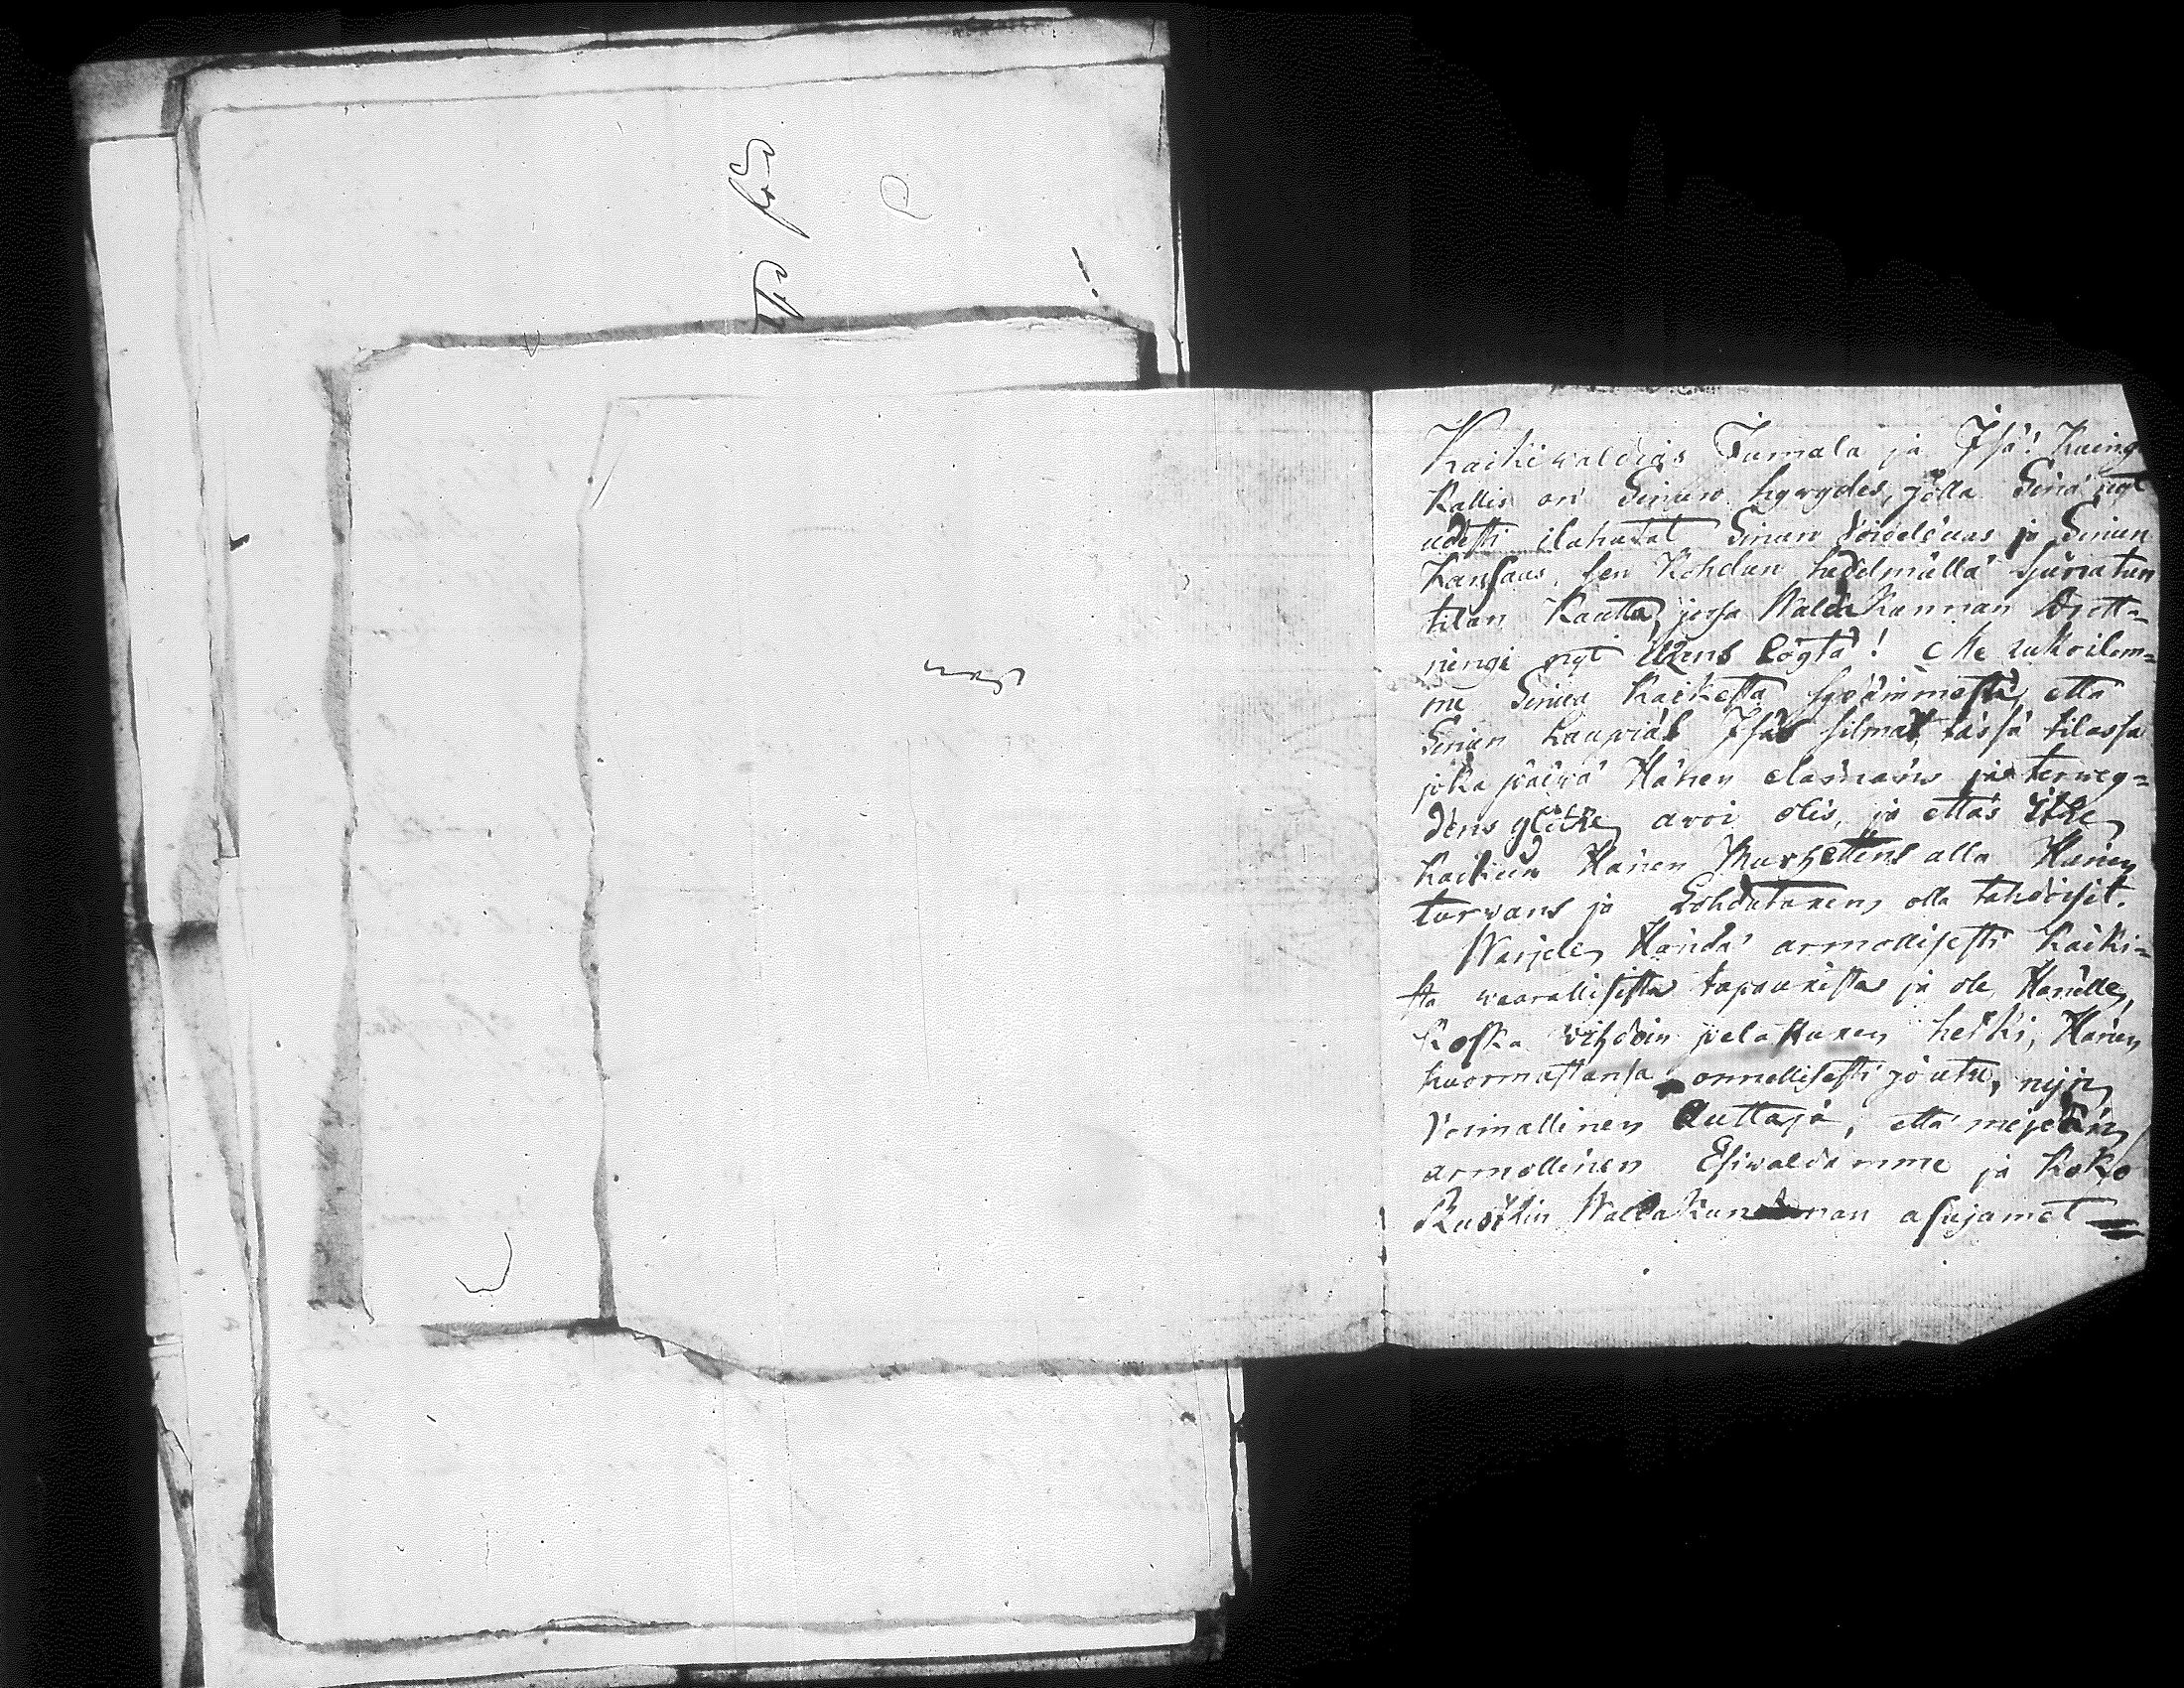 Kaikiwaldias Jumala ja Isä! Kuinga
Kallis on Sinun hywydes, jolla Sinä nyt
udesti ilahutat Sinun Voideldus ja Sinun
Kansans, sen Kohdun hedelmällä siuratun
tilan Kautta, josa WaldaKunnan Drott-
ningi nyt idzens Löytä! Me rukoilem-
me Sinua Kaikesta sydämmestä, että
Sinun Laupias Isäs silmät, täsä tilassa
joka päiwä Hänen elämäns ja terwey-
dens ylitze awoi olis, ja ettäs itze
Kaikein Hänen Murhettens alla Hänen
turwans ja Lohdutuxens olla tahdoisit.
Warjele Händä armollisesti Kaiki-
sta waarallisista tapauxista ja ole Hänelle,
Koska wihdoin pelastuxen hetki, Hänen
kuormastansa onnellisesti joutu, nijn
Voimallinen Auttaja, että meidän
armollinen Esiwaldamme ja Koko
Ruotzin WaldaKunnan asujamet